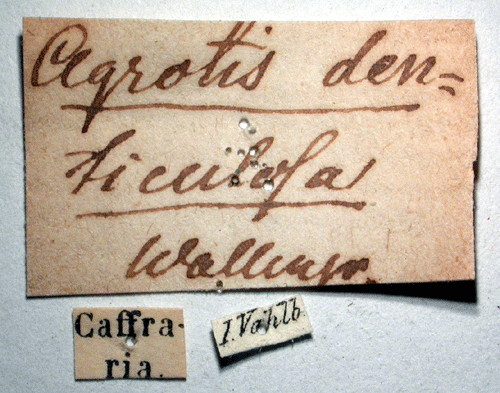 Agrotis den=
ticulosa
Wallengr.
Caffra-
ria.
I. Vahlb.